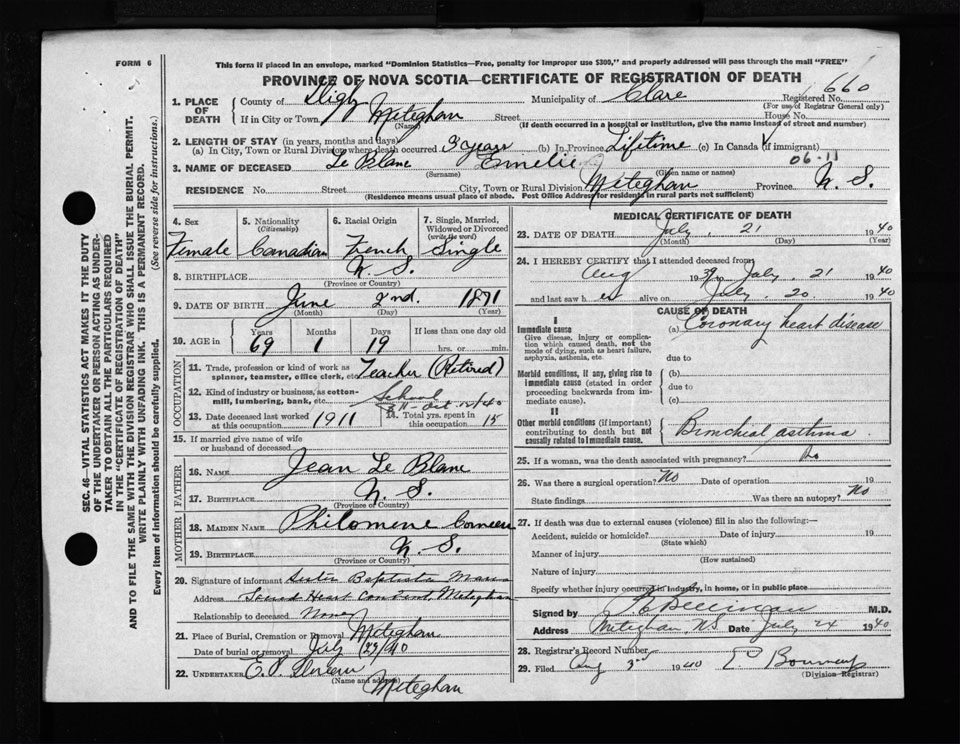 FORM 6
This form if placed in an envelope, marked "Dominion Statistics—Free, penalty for improper use $300," and properly addressed will pass through the mail "FREE"
PROVINCE OF NOVA SCOTIA—CERTIFICATE OF REGISTRATION OF DEATH
660
1. PLACE OF DEATH County of Digby Municipality of Clare Registered No.
(For use of Registrar General only)
If in City or Town Meteghan Street House No.
(Name) (If death occurred in a hospital or institution, give the name instead of street and number)
2. LENGTH OF STAY (in years, months and days)
(a) In City, Town or Rural Division where death occurred 3 years (b) In Province Lifetime (c) In Canada (if immigrant)
06-11
3. NAME OF DECEASED Le Blanc Emelie
(Surname) (Given name or names)
RESIDENCE No. Street City, Town or Rural Division Meteghan Province N. S.
(Residence means usual place of abode. Post Office Address for residents in rural parts not sufficient)
4. Sex 5. Nationality (Citizenship) 6. Racial Origin 7. Single, Married, Widowed or Divorced (write the word)
Female Canadian French Single
8. BIRTHPLACE N. S.
(Province or Country)
9. DATE OF BIRTH June 2nd. 1871
(Month) (Day) (Year)
10. AGE in Years Months Days If less than one day old
69 1 19 hrs. or min.
OCCUPATION
11. Trade, profession or kind of work as spinner, teamster, office clerk, etc. Teacher (Retired)
12. Kind of industry or business, as cotton-mill, lumbering, bank, etc. School
13. Date deceased last worked at this occupation 1911 14. Total yrs. spent in this occupation 15
15. If married give name of wife or husband of deceased
FATHER
16. NAME Jean Le Blanc
17. BIRTHPLACE N. S.
(Province or Country)
MOTHER
18. MAIDEN NAME Philomene Comeau
19. BIRTHPLACE N. S.
(Province or Country)
20. Signature of informant Sister Baptista Maria
Address Sacred Heart Convent, Meteghan
Relationship to deceased None
21. Place of Burial, Cremation or Removal Meteghan
Date of burial or removal July 23/40
22. UNDERTAKER E.
(Name and address)
Meteghan
MEDICAL CERTIFICATE OF DEATH
23. DATE OF DEATH July 21 1940
(Month) (Day) (Year)
24. I HEREBY CERTIFY that I attended deceased from
Aug 1939 to July 21 1940
and last saw her alive on July 20 1940
CAUSE OF DEATH
I
Immediate cause
Give disease, injury or complication which caused death, not the mode of dying, such as heart failure, asphyxia, asthenia, etc.
(a) Coronary heart disease
due to
Morbid conditions, if any, giving rise to immediate cause (stated in order proceeding backwards from immediate cause).
(b)
due to
(c)
II
Other morbid conditions (if important) contributing to death but not causally related to immediate cause.
Bronchial asthma
25. If a woman, was the death associated with pregnancy? No
26. Was there a surgical operation? No Date of operation 19
State findings Was there an autopsy? No
27. If death was due to external causes (violence) fill in also the following:—
Accident, suicide or homicide? Date of injury 19
(State which)
Manner of injury
(How sustained)
Nature of injury
Specify whether injury occurred in industry, in home, or in public place
Signed by M.D.
Address Meteghan N.S. Date July 24 1940
28. Registrar's Record Number
29. Filed Aug 3rd 1940
(Division Registrar)
SEC. 46—VITAL STATISTICS ACT MAKES IT THE DUTY
OF THE UNDERTAKER OR PERSON ACTING AS UNDERTAKER
TO OBTAIN ALL THE PARTICULARS REQUIRED
IN THE "CERTIFICATE OF REGISTRATION OF DEATH"
AND TO FILE THE SAME WITH THE DIVISION REGISTRAR WHO SHALL ISSUE THE BURIAL PERMIT.
WRITE PLAINLY WITH UNFADING INK. THIS IS A PERMANENT RECORD.
Every item of information should be carefully supplied. (See reverse side for instructions.)